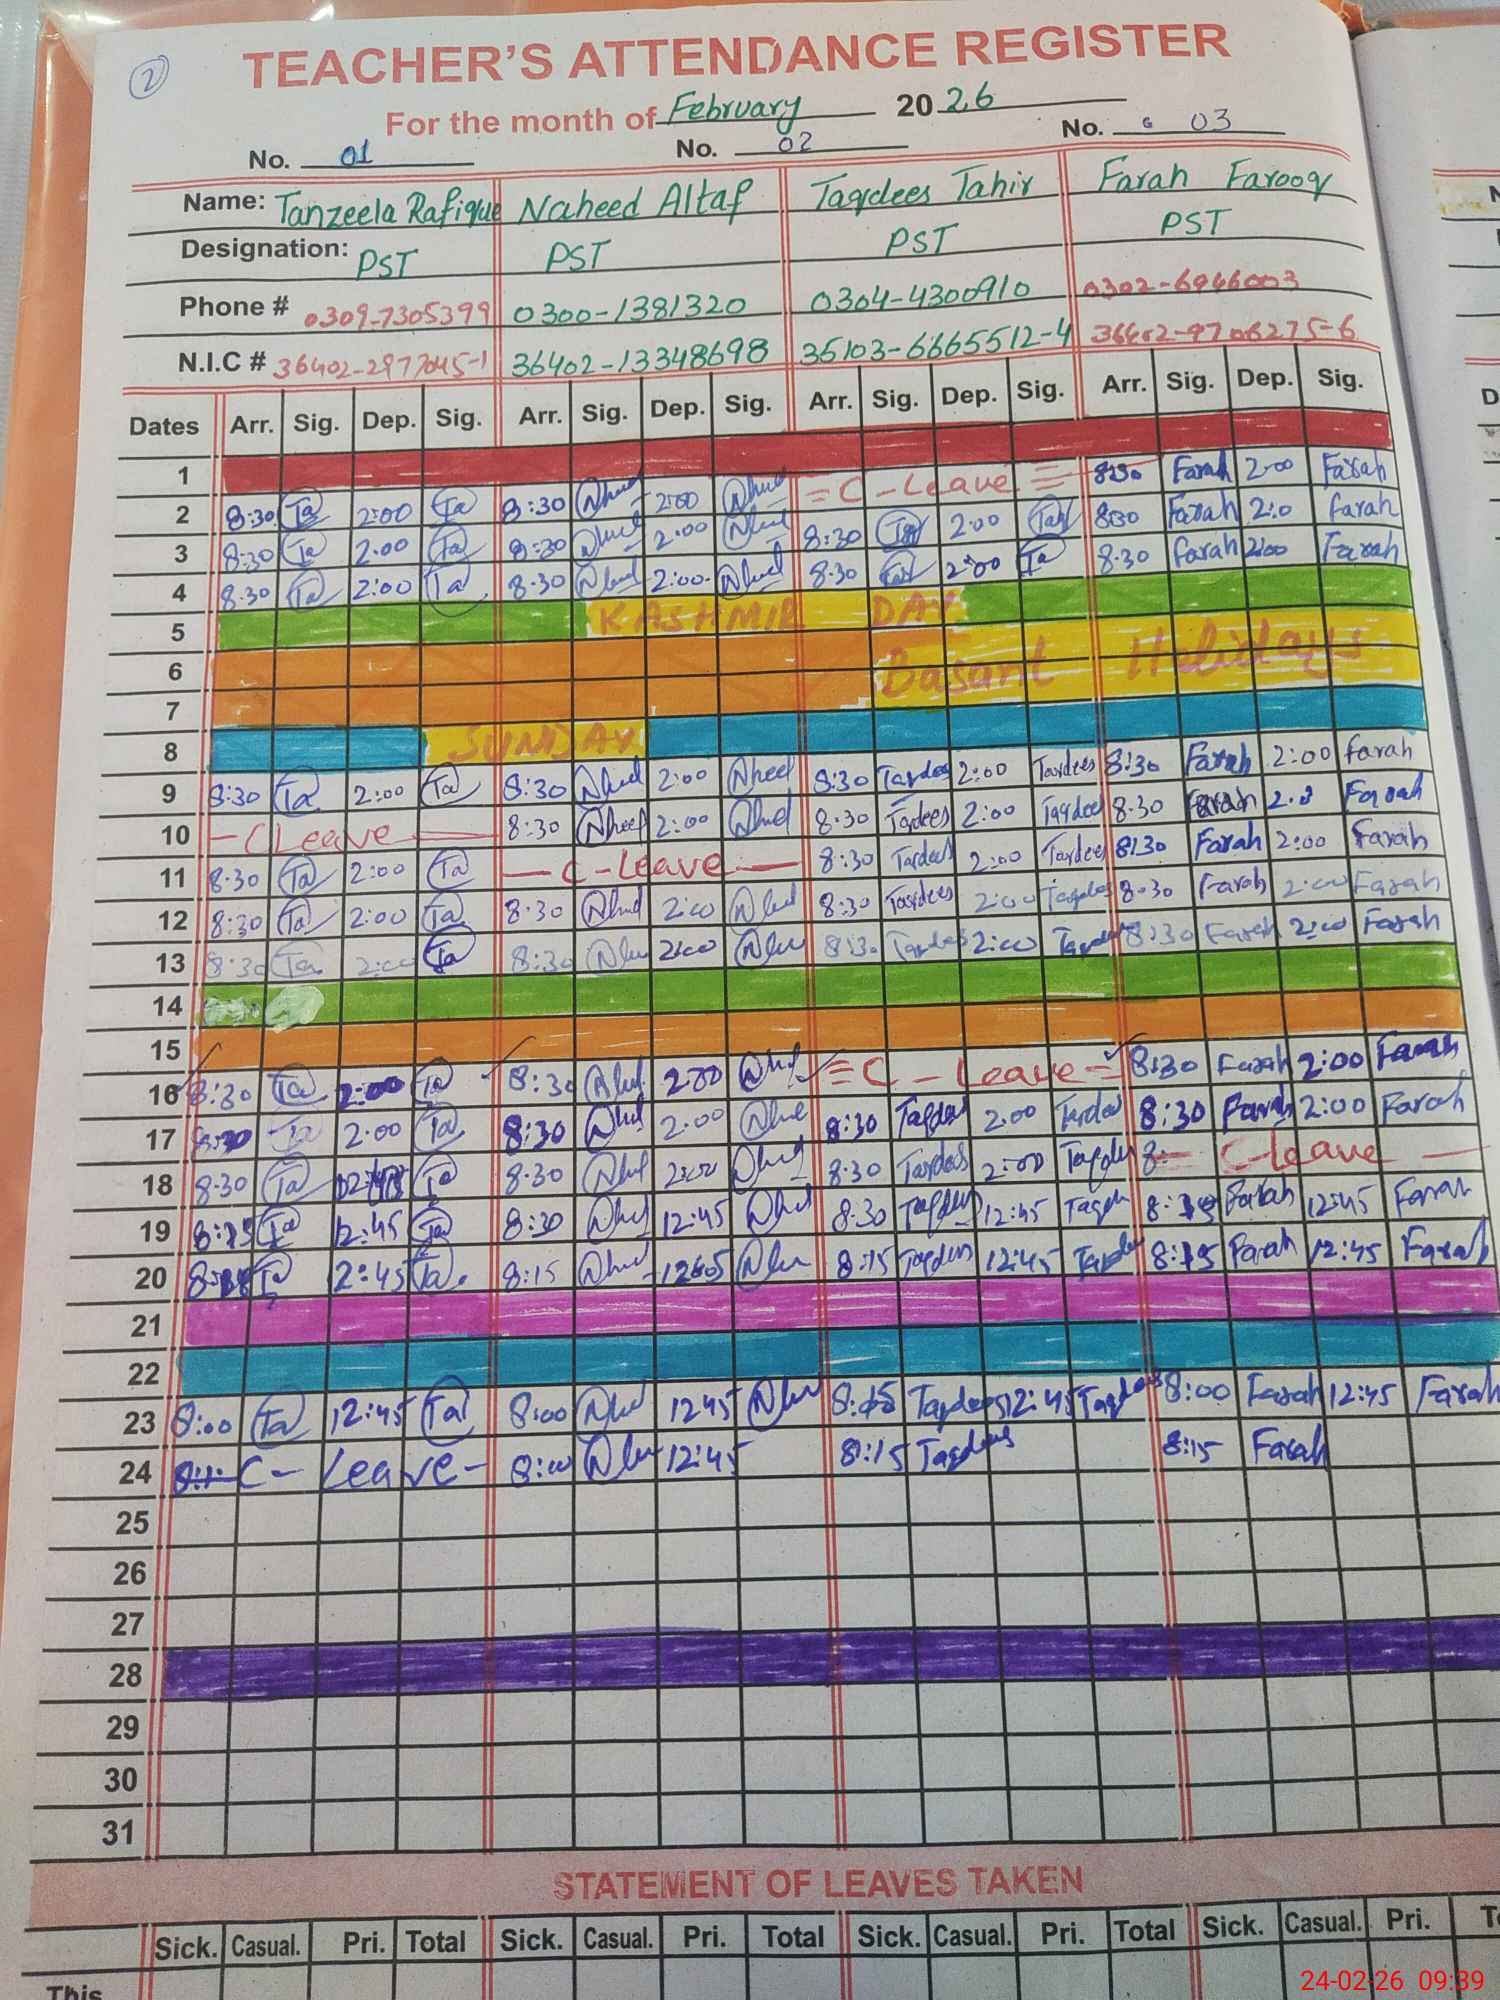 2
TEACHER'S ATTENDANCE REGISTER
For the month of February 2026
No. 01 No. 02 No. 03
Name: Tanzeela Rafique Naheed Altaf Taqdees Tahir Farah Farooq
Designation: PST PST PST PST
Phone # 0309-7305399 0300-1381320 0304-4300910 0302-6946003
N.I.C # 36402-2977045-1 36402-13348698 35103-6665512-4 36402-9706275-6
Dates Arr. Sig. Dep. Sig. Arr. Sig. Dep. Sig. Arr. Sig. Dep. Sig. Arr. Sig. Dep. Sig.
1
2 8:30 Ta 2:00 Ta 8:30 2:00 = C - Leave = 8:30 Farah 2:00 Farah
3 8:30 Ta 2:00 Ta 8:30 2:00 8:30 2:00 8:30 Farah 2:0 Farah
4 8:30 Ta 2:00 Ta 8:30 2:00 8:30 2:00 Ta 8:30 Farah 2:00 Farah
5 KASHMIR DAY
6 Basant Holidays
7
8 SUNDAY
9 8:30 Ta 2:00 Ta 8:30 2:00 8:30 Taqdees 2:00 Taqdees 8:30 Farah 2:00 Farah
10 - C Leave - 8:30 2:00 8:30 Taqdees 2:00 Taqdees 8:30 Farah Farah
11 8:30 Ta 2:00 Ta - C - Leave - 8:30 Taqdees 2:00 Taqdees 8:30 Farah 2:00 Farah
12 8:30 Ta 2:00 Ta 8:30 2:00 8:30 Taqdees 2:00 Taqdees 8:30 Farah 2:00 Farah
13 8:30 Ta 2:00 Ta 8:30 2:00 8:30 Taqdees 2:00 Taqdees 8:30 Farah 2:00 Farah
14
15
16 8:30 Ta 2:00 Ta 8:30 2:00 = C - Leave - 8:30 Farah 2:00 Farah
17 8:30 Ta 2:00 Ta 8:30 2:00 8:30 Taqdees 2:00 Taqdees 8:30 Farah 2:00 Farah
18 8:30 Ta Ta 8:30 2:00 8:30 Taqdees 2:00 Taqdees 8: - C-Leave -
19 8:15 Ta 12:45 Ta 8:30 12:45 8:30 Taqdees 12:45 Taqdees Farah 12:45 Farah
20 Ta 2:45 Ta 8:15 8:15 Taqdees 12:45 Taqdees 8:15 Farah 12:45 Farah
21
22
23 8:00 Ta 12:45 Ta 8:00 12:45 Taqdees 12:45 Taqdees 8:00 Farah 12:45 Farah
24 C- Leave- 8:00 12:45 8:15 Taqdees 8:15 Farah
25
26
27
28
29
30
31
STATEMENT OF LEAVES TAKEN
Sick. Casual. Pri. Total Sick. Casual. Pri. Total Sick. Casual. Pri. Total Sick. Casual. Pri.
This
24-02-26 09:39